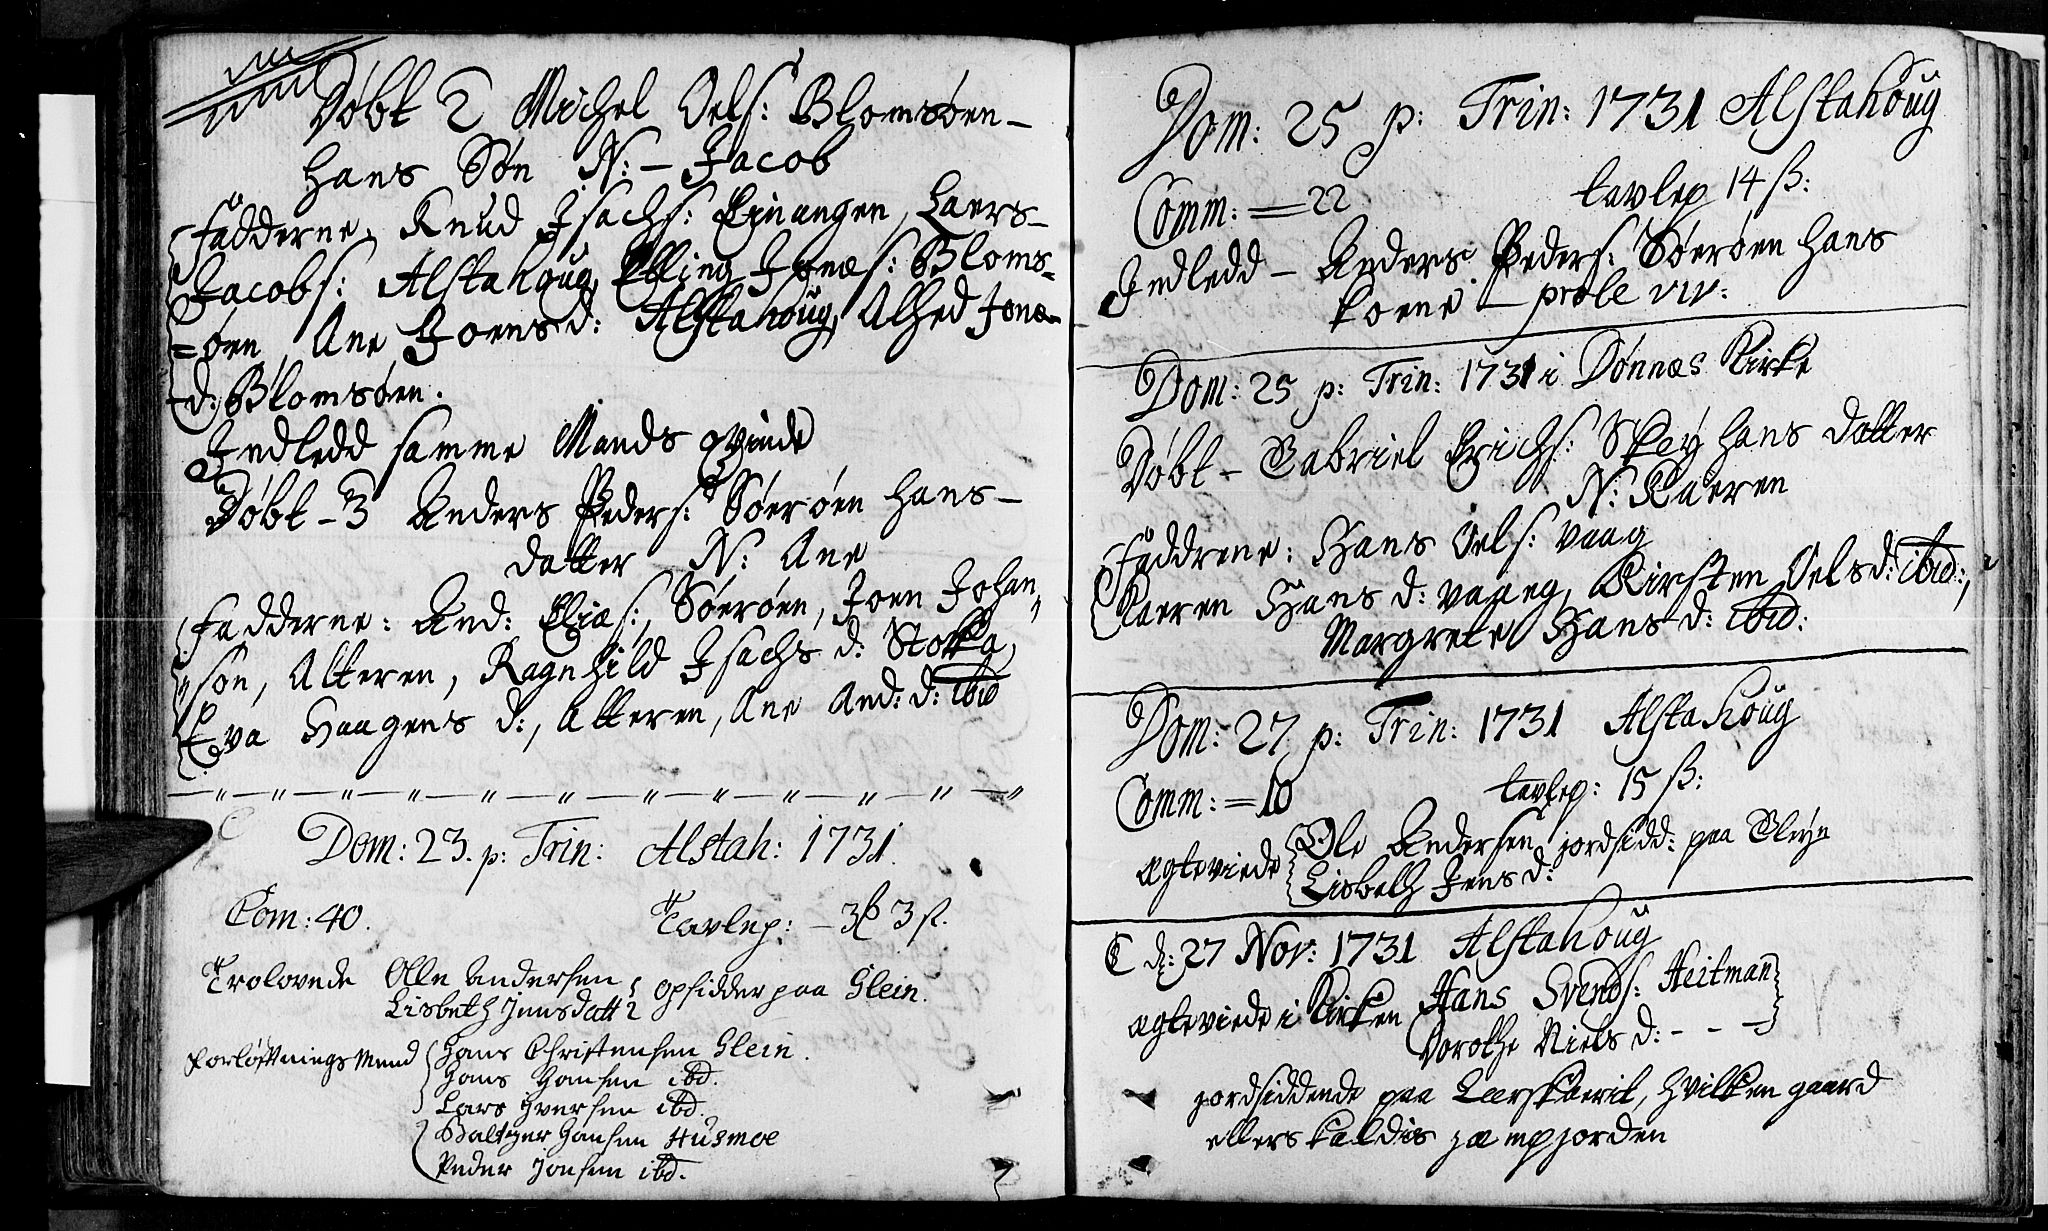 Døbt 2 Michel Oels: Blomsøen-
hans Søn N:- Jacob
Fadderne. Knud Isachs: Einangen, Laers-
Jacobs: Alstahoug, Elling Jonæs: Bloms-
=øen, Ane Joensd: Alstahoug, Alhed Jonæ-
d: Blomsøen.
Indledd samme Mands qvinde
Døbt - 3 Anders Peders: Søerøen hans-
datter N: Ane
Fadderne: And: Elias:, Søerøen, Joen Johan
søn, Alteren, Ragnhild Isachs d: Stokka,
Eva Haagens d:, Alteren, Ane And: d: ibid
Dom: 23. p: Trin: Alstah: 1731.
Com: 40. Tavlep: - 3 ₰ 3 s.
Trolovede Olle Andersen
Lisbeth Jensdatt opsidder paa Glein.
Forløftnings Mænd Hans Christensen Glein.
Hans Hansen ibd.
Lars Iversen ibd.
Baltzer Hansen Husmoe
Peder Jonsen ibd.
Dom: 25 p: Trin: 1731 Alstahoug
Comm: = 22 tavlep 14 ß:
Indledd - Anders Peders: Søerøen hans
koene - prole viv:
Dom: 25 p: Trin: 1731 i Dønnæs Kirke
Døbt - Gabriel Erichs: Skey hans datter
N: Kaeren
Faddrene: Hans Oels: vaag
Kaeren Hans d: vaaeg, Kirsten Oelsd: ibid:,
Margrete Hans d: ibid:
Dom: 27 p: Trin: 1731 Alstahoug
Comm: = 10 tavlep: 15 ß:
ægteviede Ole Andersen jordsidd: paa Gleyn
Lisbeth Jensd:
d: 27 Nov: 1731 Alstahoug
ægteviede i Kirken Hans Svends: Heitman
Dorothe Niels d: - - -
jordsiddende paa Leerskaerit, hvilken gaard
ellers kaldis jæmpjorden